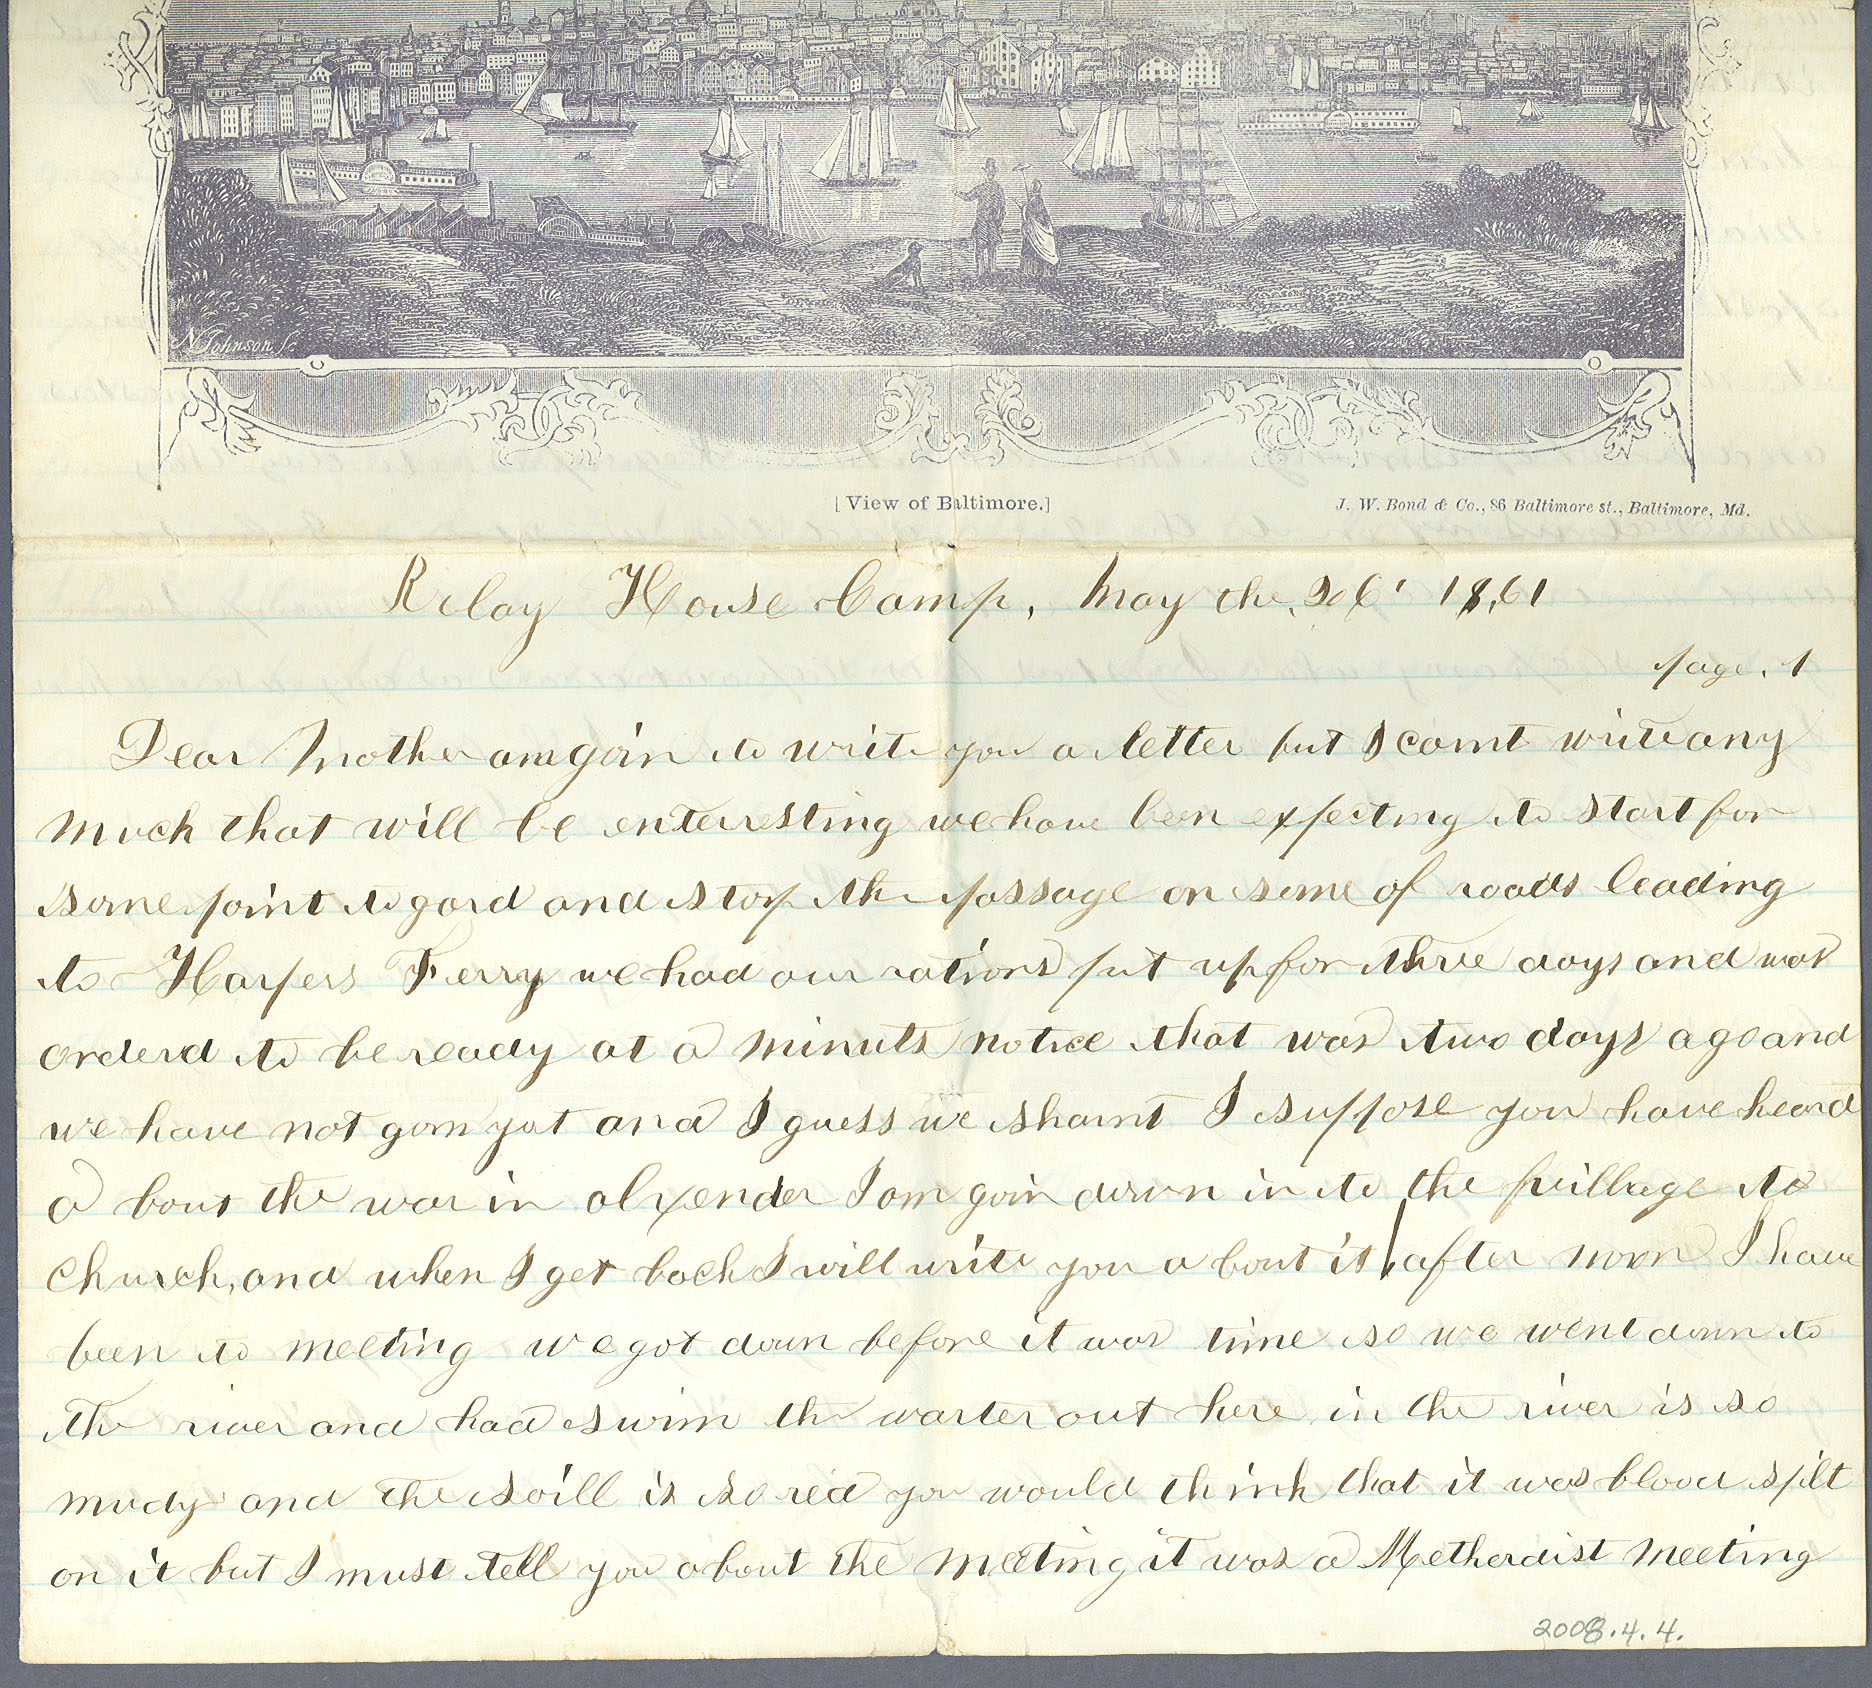 N Johnson Sc
[View of Baltimore.]
J. W. Bond & Co., 86 Baltimore st., Baltimore, Md.
Relay House Camp, May the, 26' 1861
page. 1
Dear Mother am goin to write you a letter but I caint write any
much that will be enterresting we have been expecting to start for
some point to gard and stop the passage on some of roads leading
to Harpers Ferry we had our rations put up for three days and was
orderd to be ready at a minuts notice that was two days ago and
we have not gorn yat and I guess we shaint I suppose you have heard
a bout the war in alxender I am goin down in to the village to
church, and when I get back I will write you a bout it after noon I have
been to meeting we got down before it was time so we went down to
the river and had a swim the warter out here in the river is so
mudy and the soill is so red you would think that it was blood spilt
on it but I must tell you about the meeting it was a Metherdist meeting
2008.4.4.